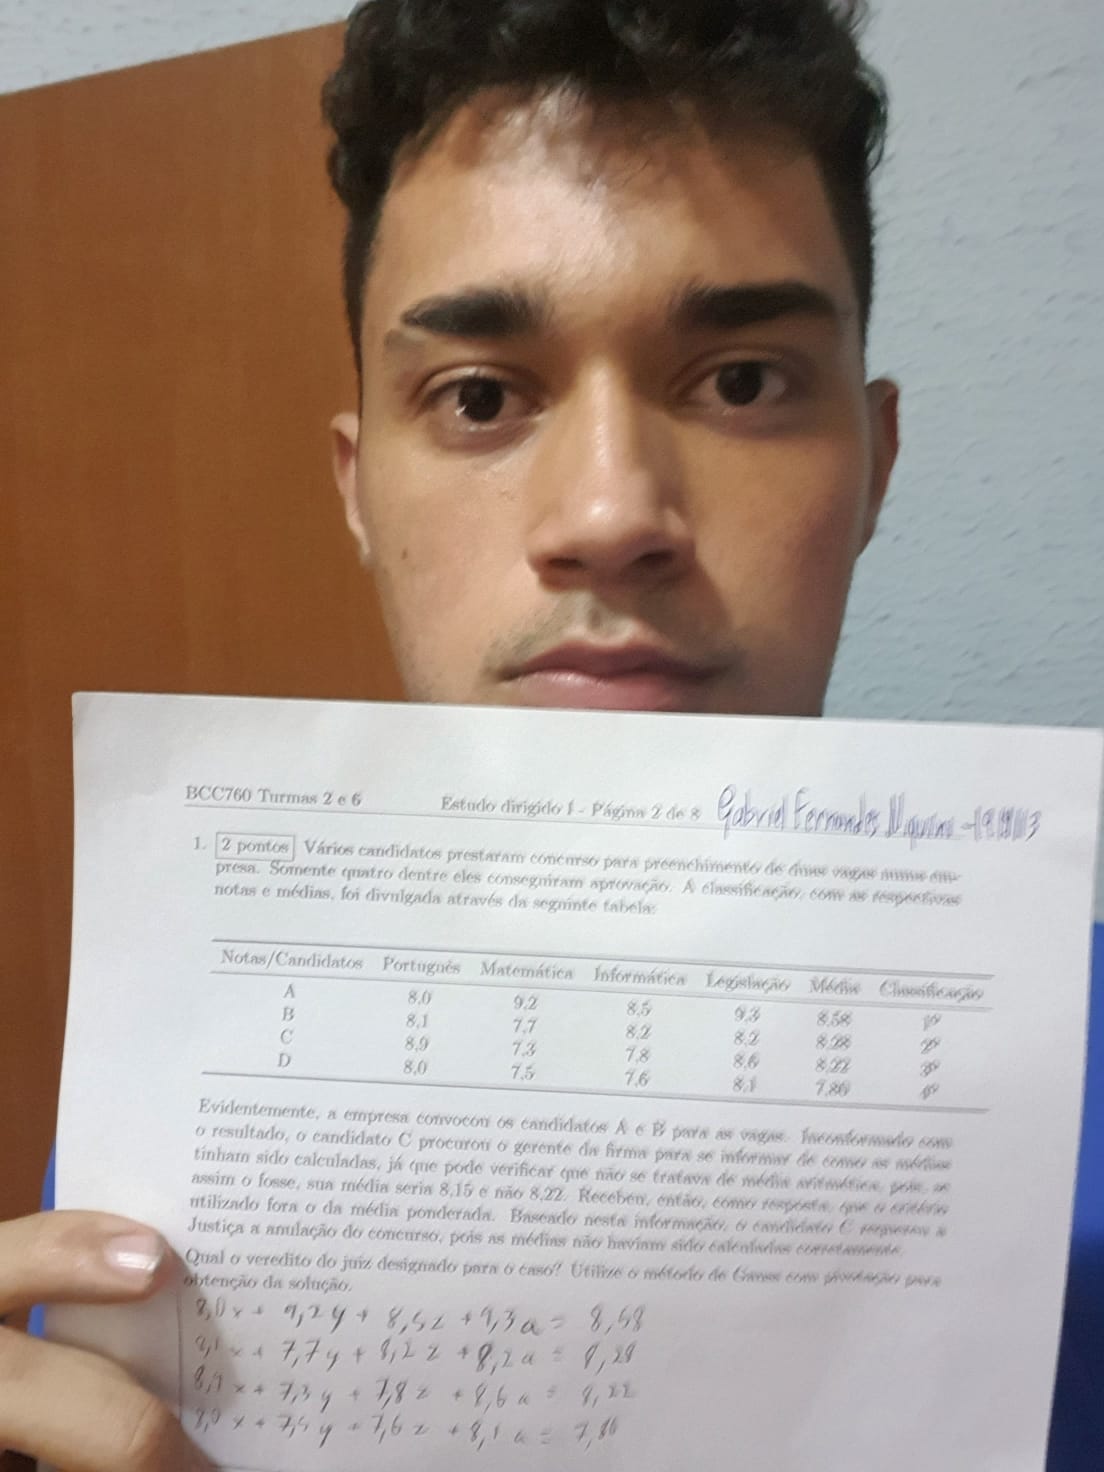 BCC760 Turmas 2 e 6 Estudo dirigido 1 - Página 2 de 8 Gabriel Fernandes
1. 2 pontos Vários candidatos prestaram concurso para preenchimento de duas vagas numa em-
presa. Somente quatro dentre eles conseguiram aprovação. A classificação, com as respectivas
notas e médias, foi divulgada através da seguinte tabela:
Notas/Candidatos Português Matemática Informática Legislação Média Classificação
A 8,0 9,2 8,5 9,3 8,58 1º
B 8,1 7,7 8,2 8,2 8,28 2º
C 8,9 7,3 7,8 8,6 8,22 3º
D 8,0 7,5 7,6 8,1 7,80 4º
Evidentemente, a empresa convocou os candidatos A e B para as vagas. Inconformado com
o resultado, o candidato C procurou o gerente da firma para se informar de como as médias
tinham sido calculadas, já que pode verificar que não se tratava de média aritmética, pois, se
assim o fosse, sua média seria 8,15 e não 8,22. Recebeu, então, como resposta, que o critério
utilizado fora o da média ponderada. Baseado nesta informação, o candidato C requereu a
Justiça a anulação do concurso, pois as médias não haviam sido calculadas corretamente.
Qual o veredito do juiz designado para o caso? Utilize o método de Gauss com pivotação para
obtenção da solução.
8,0x + 9,2y + 8,5z + 9,3a = 8,58
8,1x + 7,7y + 8,2z + 8,2a = 8,28
8,9x + 7,3y + 7,8z + 8,6a = 8,22
8,0x + 7,5y + 7,6z + 8,1a = 7,80